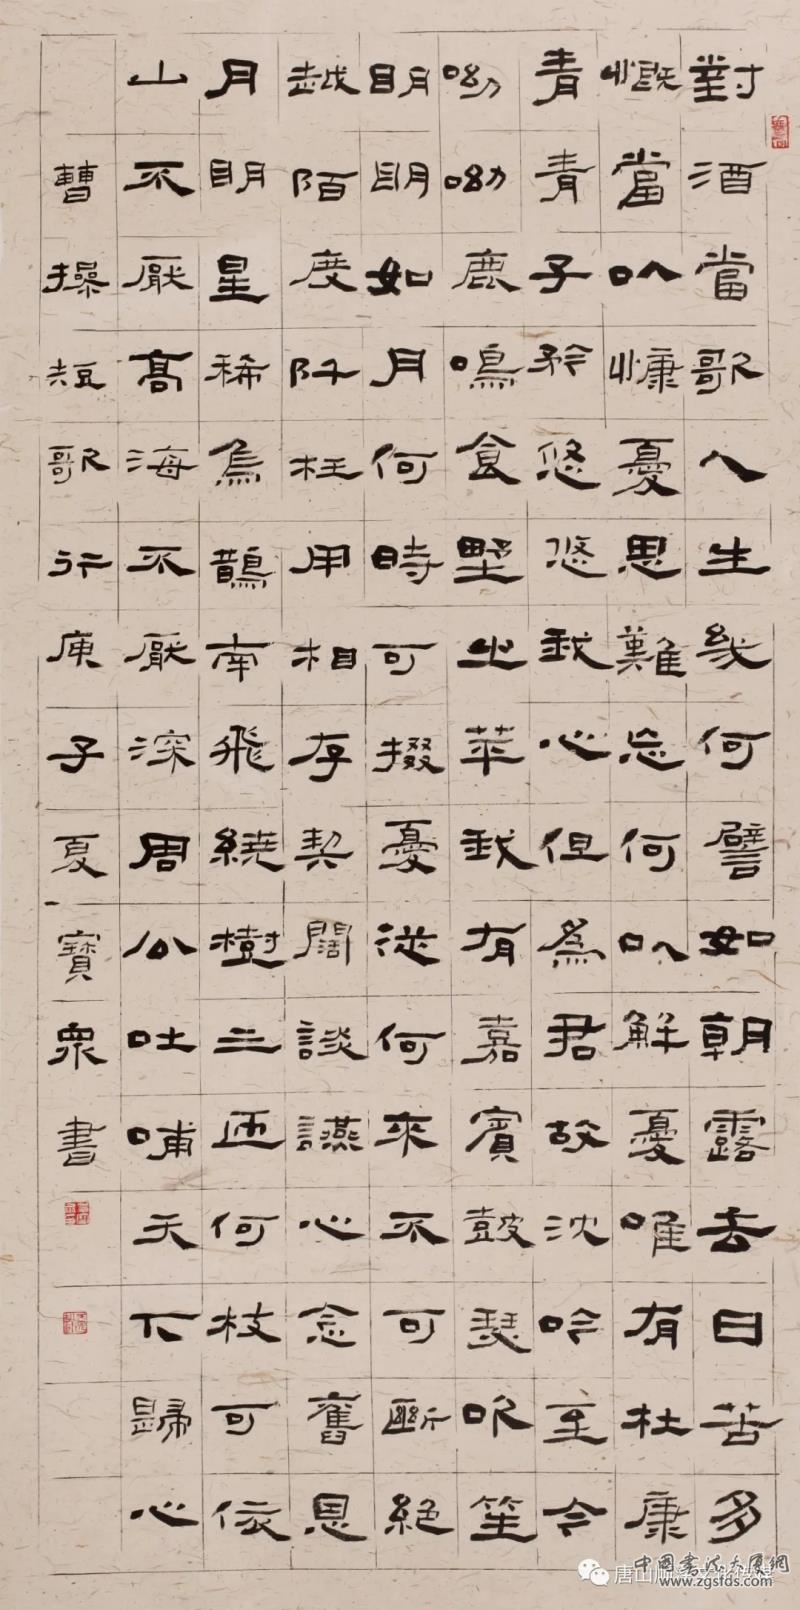 對酒當歌人生幾何譬如朝露去日苦多
慨當以慷憂思難忘何以解憂唯有杜康
青青子衿悠悠我心但為君故沈吟至今
呦呦鹿鳴食野之苹我有嘉賓鼓瑟吹笙
明明如月何時可掇憂從何來不可斷絕
越陌度阡枉用相存契闊談讌心念舊恩
月明星稀烏鵲南飛繞樹三匝何枝可依
山不厭高海不厭深周公吐哺天下歸心
曹操短歌行庚子夏寶眾書
中國書法大厦網
www.zgsfds.com
唐山